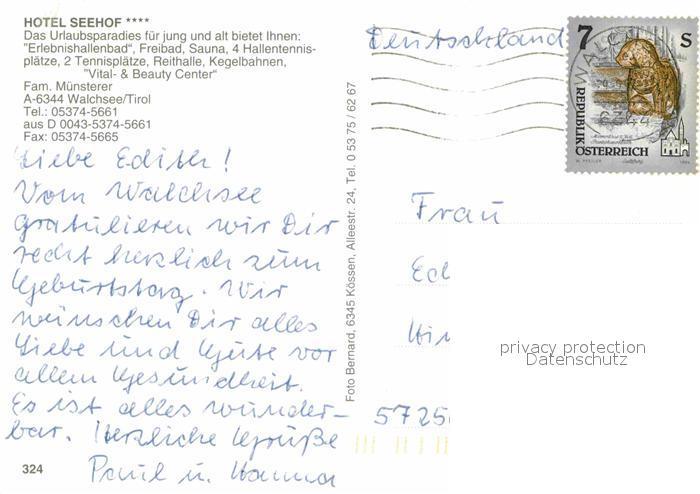 HOTEL SEEHOF ****
Das Urlaubsparadies für jung und alt bietet Ihnen:
"Erlebnishallenbad", Freibad, Sauna, 4 Hallentennis-
plätze, 2 Tennisplätze, Reithalle, Kegelbahnen,
"Vital- & Beauty Center"
Fam. Münsterer
A-6344 Walchsee/Tirol
Tel.: 05374-5661
aus D 0043-5374-5661
Fax: 05374-5665
Liebe Edith!
Vom Walchsee
gratulieren wir Dir
recht herzlich zum
Geburtstag. Wir
wünschen Dir alles
Liebe und Gute vor
allem Gesundheit.
Es ist alles wunder-
bar. Herzliche Grüße
Paul u. Hanna
324
Foto Bernard, 6345 Kössen, Alleestr. 24, Tel. 0 53 75 / 62 67
Deutschland
7 S
REPUBLIK
ÖSTERREICH
6344
Frau
Ed
Hin
5725
privacy protection
Datenschutz